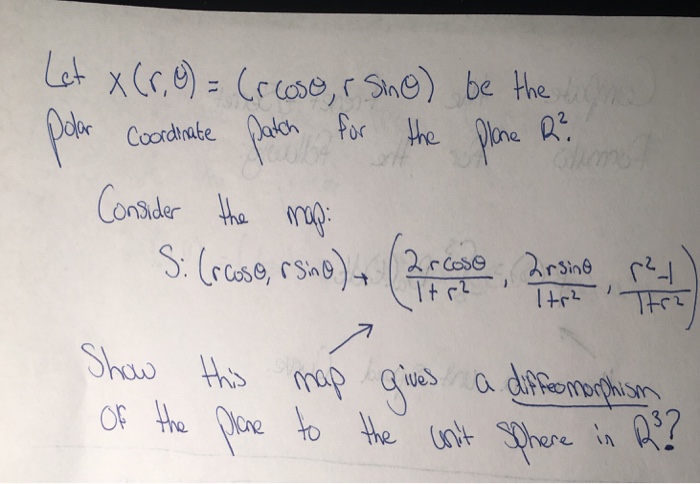 Let x(r,θ) = (r cosθ, r Sinθ) be the
polar Coordinate patch for the plane R².
Consider the map:
S: (r cosθ, r sinθ) → (2r cosθ/1+r², 2r sinθ/1+r², r²-1/1+r²)
Show this map gives a diffeomorphism
of the plane to the unit sphere in R³?